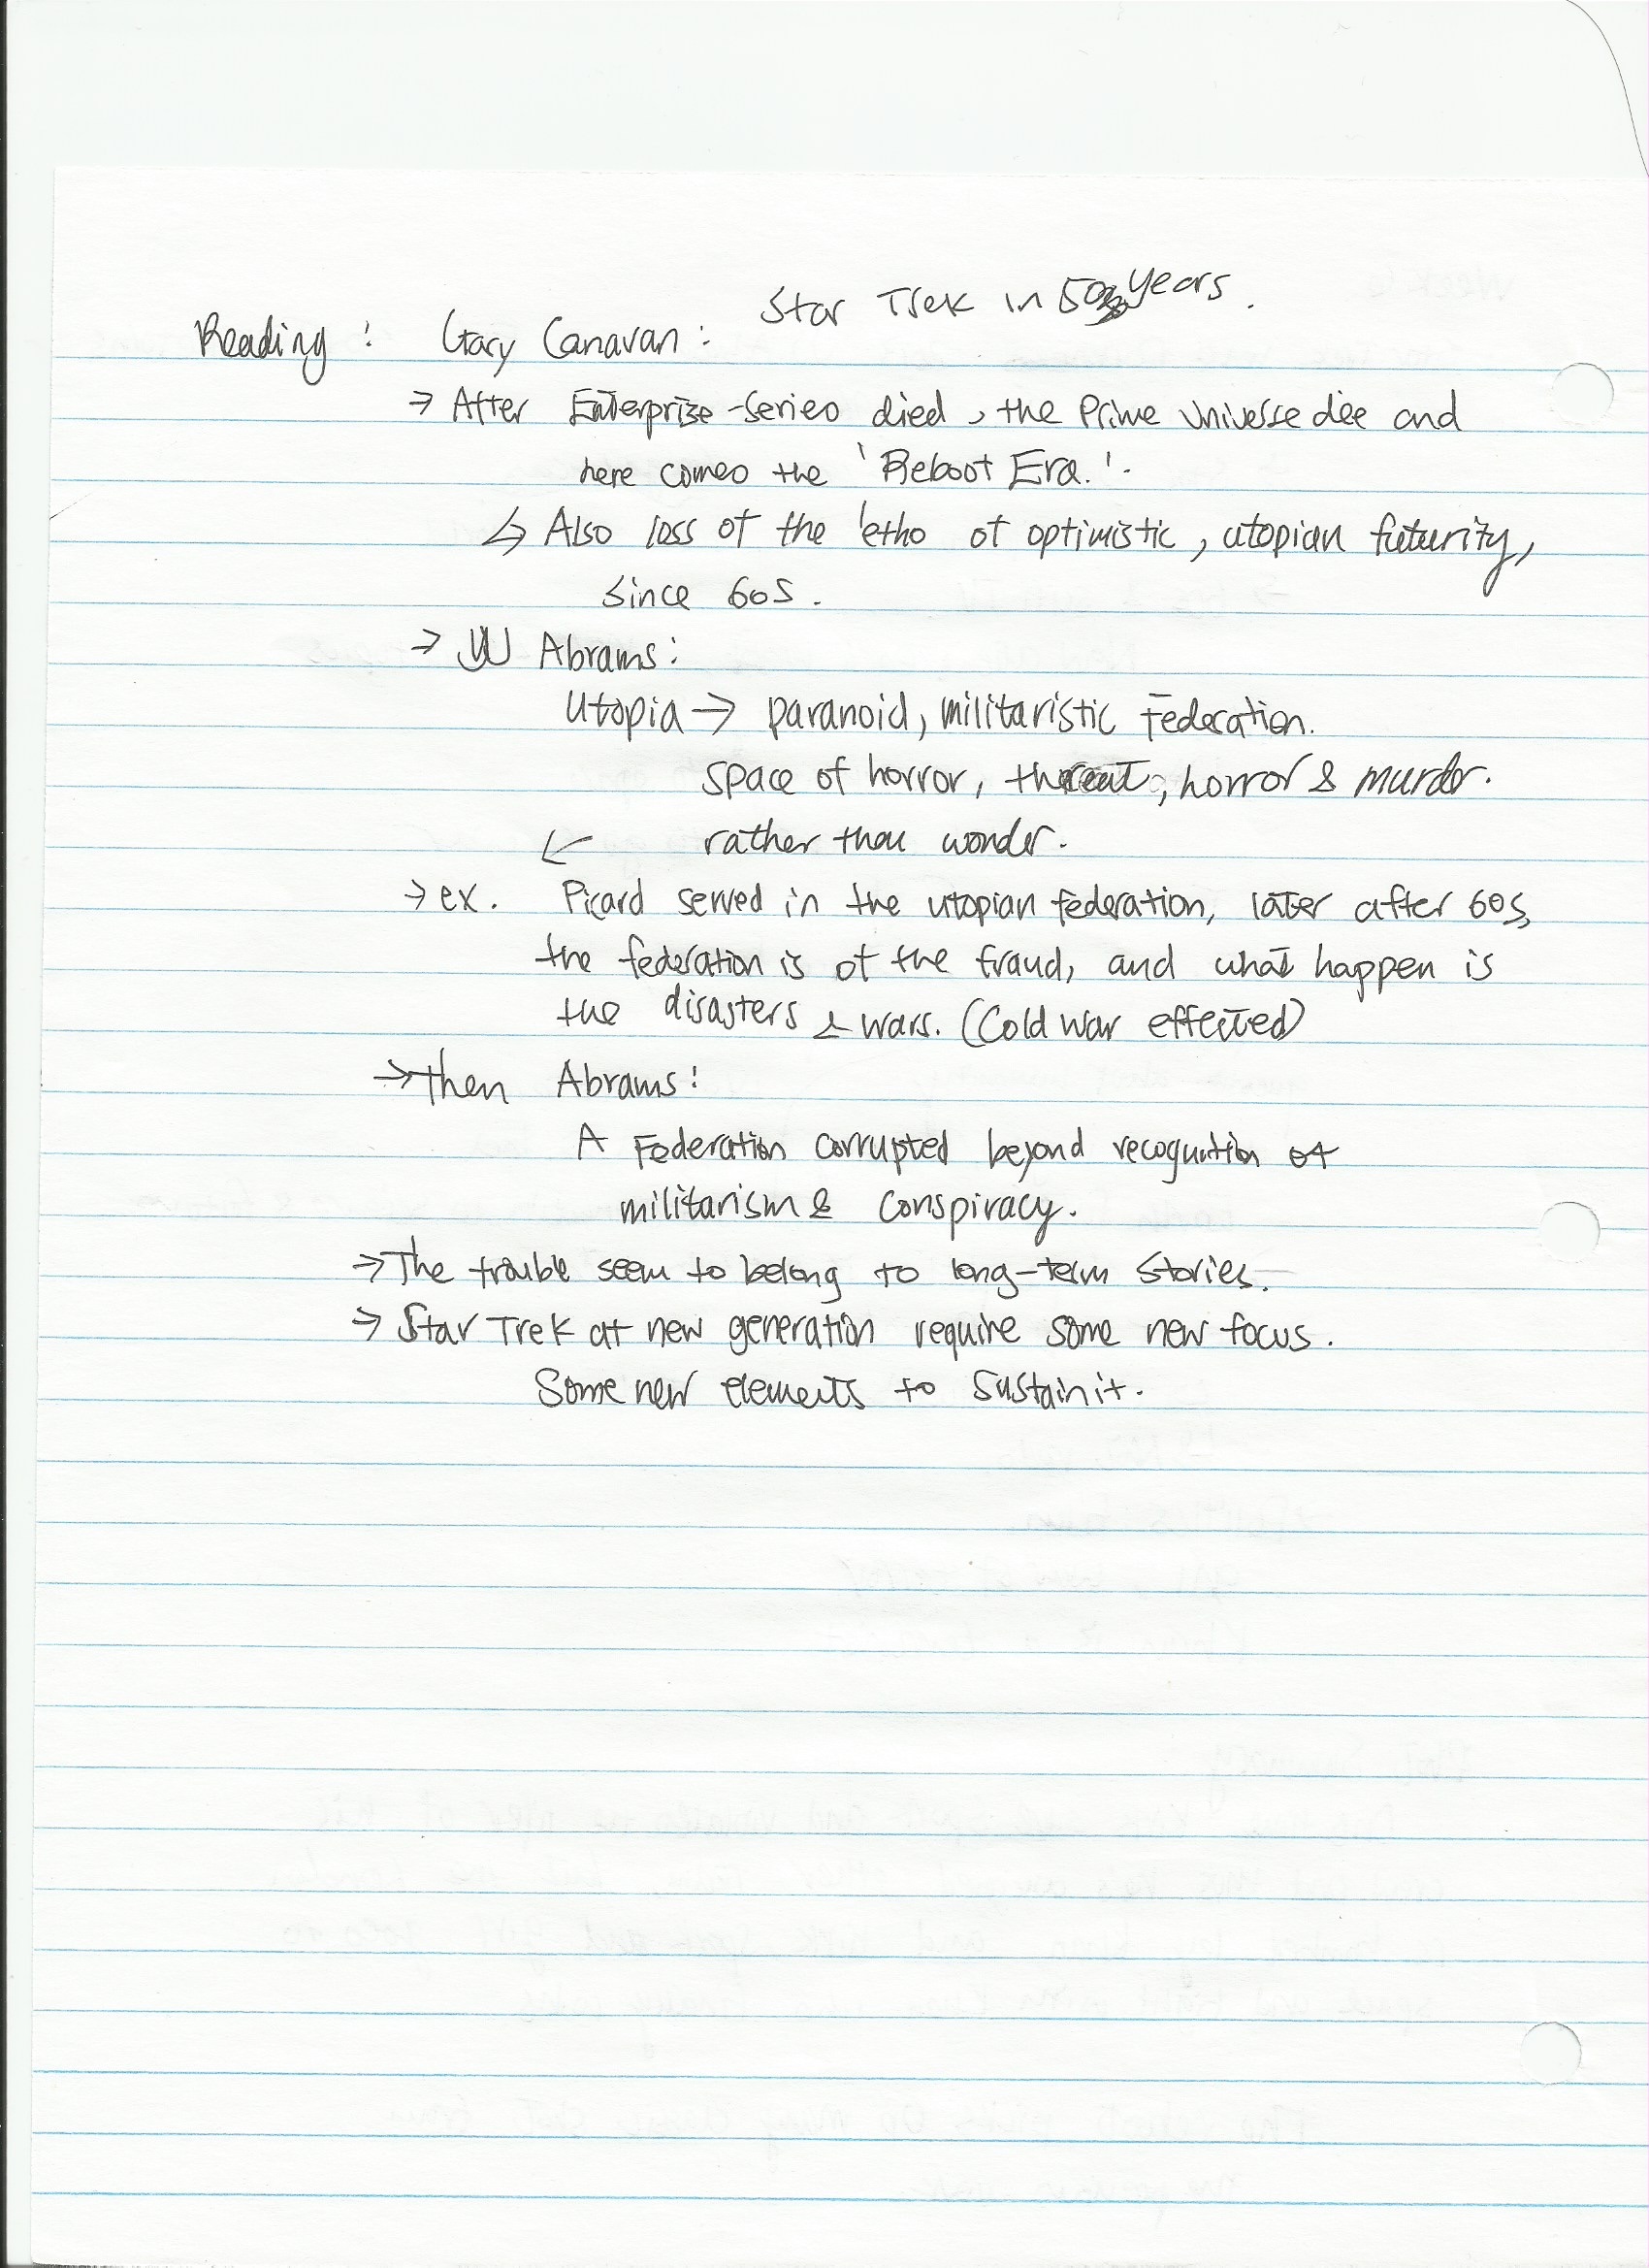 Star Trek in 50 years.
Reading : Gary Canavan :
→ After Enterprise-series died, the Prime Universe die and
here comes the 'Reboot Era.'.
↳ Also loss of the 'etho of optimistic, utopian futurity,
since 60s.
→ JJ Abrams:
Utopia → paranoid, militaristic Federation.
space of horror, threat, horror & murder.
↙ rather than wonder.
→ ex. Picard served in the utopian federation, later after 60s,
the federation is of the fraud, and what happen is
the disasters & wars. (Cold war effected)
→ then Abrams:
A Federation corrupted beyond recognition of
militarism & conspiracy.
→ The trouble seem to belong to long-term stories.
→ Star Trek at new generation require some new focus.
Some new elements to sustain it.